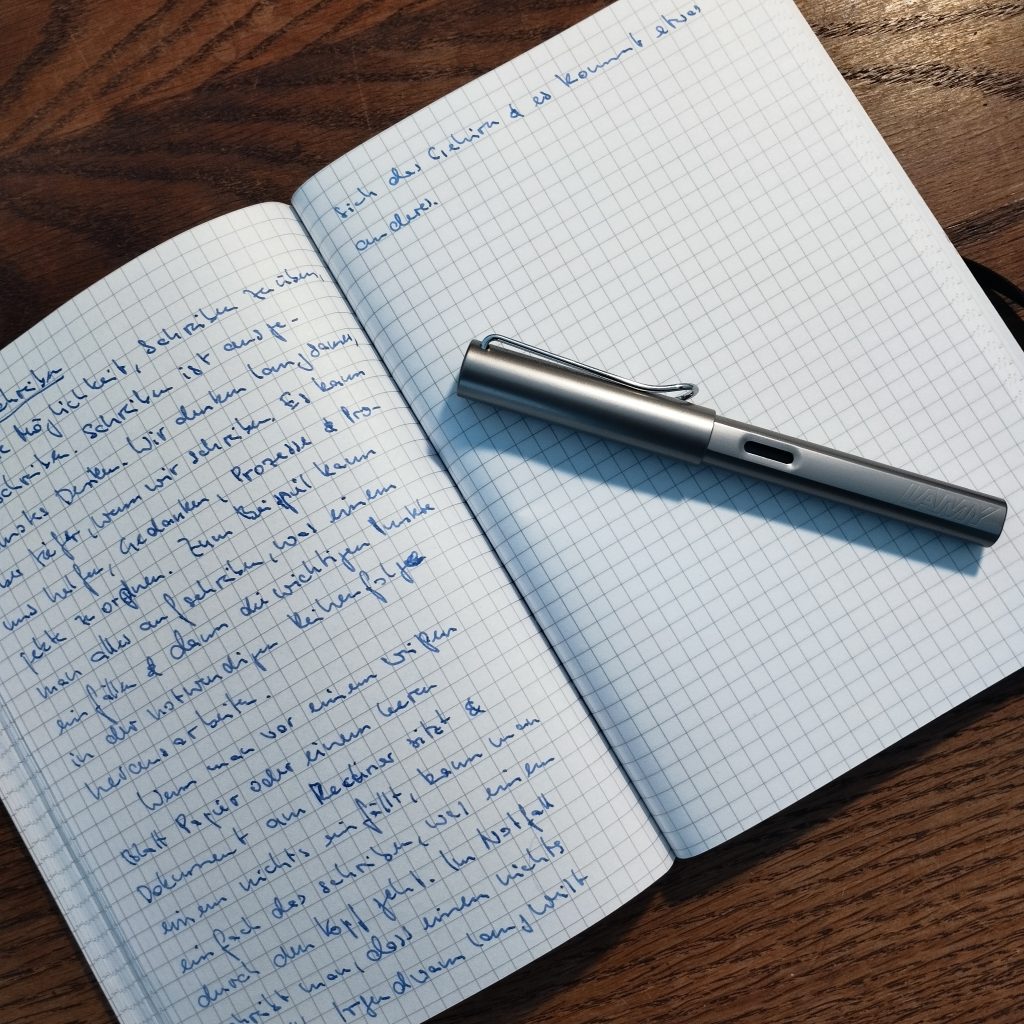 schreiben
Möglichkeit, Schreiben zu üben,
schreiben. Schreiben ist ausge-
Denken. Wir denken langsamer,
tiefer, wenn wir schreiben. Es kann
uns helfen, Gedanken, Prozesse & Pro-
jekte zu ordnen. Zum Beispiel kann
man alles aufschreiben, was einem
einfällt & dann die wichtigen Punkte
in der notwendigen Reihenfolge
herausarbeiten.
Wenn man vor einem weißen
Blatt Papier oder einem leeren
Dokument am Rechner sitzt &
einem nichts einfällt, kann man
einfach das schreiben, was einem
durch den Kopf geht. Im Notfall
schreibt man, dass einem nichts
Irgendwann langweilt
sich das Gehirn & es kommt etwas
anderes.
LAMY